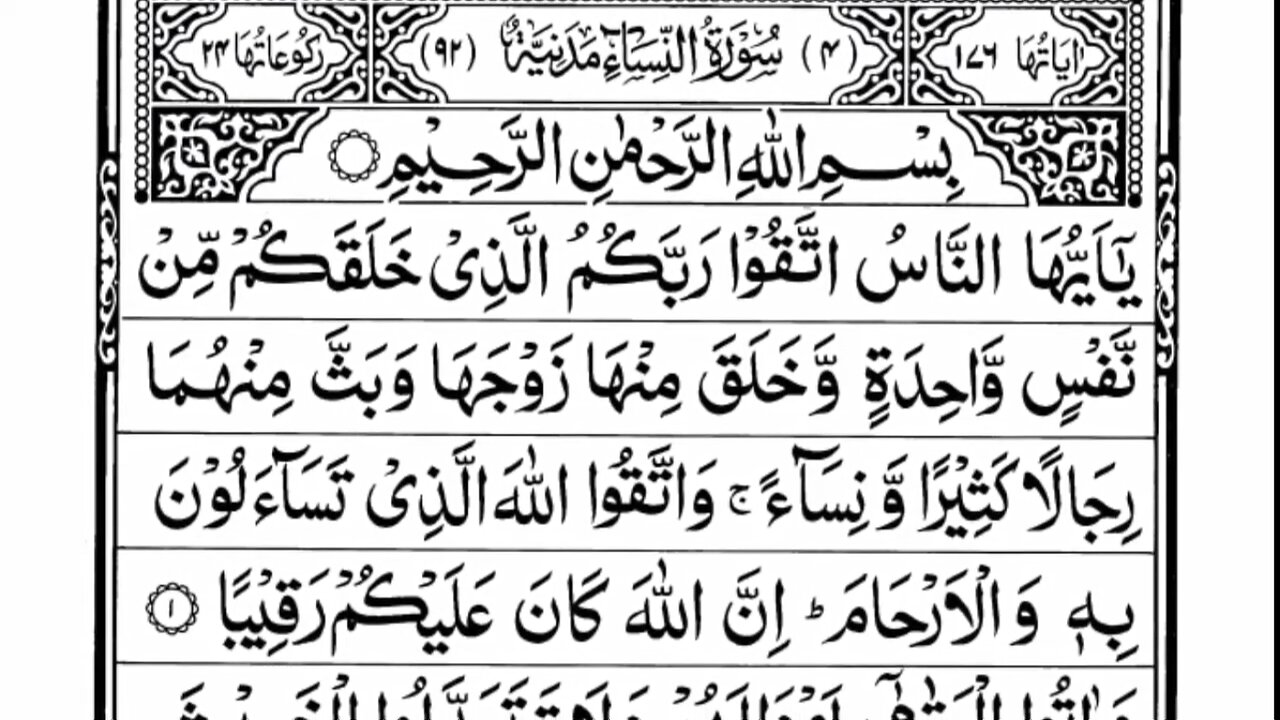 اٰيَاتُهَا ١٧٦ (٤) سُوْرَةُ النِّسَآءِ مَدَنِيَّةٌ (٩٢) رُكُوْعَاتُهَا ٢٤
بِسْمِ اللّٰهِ الرَّحْمٰنِ الرَّحِيْمِ
يٰٓاَيُّهَا النَّاسُ اتَّقُوْا رَبَّكُمُ الَّذِىْ خَلَقَكُمْ مِّنْ
نَّفْسٍ وَّاحِدَةٍ وَّخَلَقَ مِنْهَا زَوْجَهَا وَبَثَّ مِنْهُمَا
رِجَالًا كَثِيْرًا وَّ نِسَآءً ۚ وَاتَّقُوا اللّٰهَ الَّذِىْ تَسَآءَلُوْنَ
بِهٖ وَالْاَرْحَامَ ؕ اِنَّ اللّٰهَ كَانَ عَلَيْكُمْ رَقِيْبًا ١